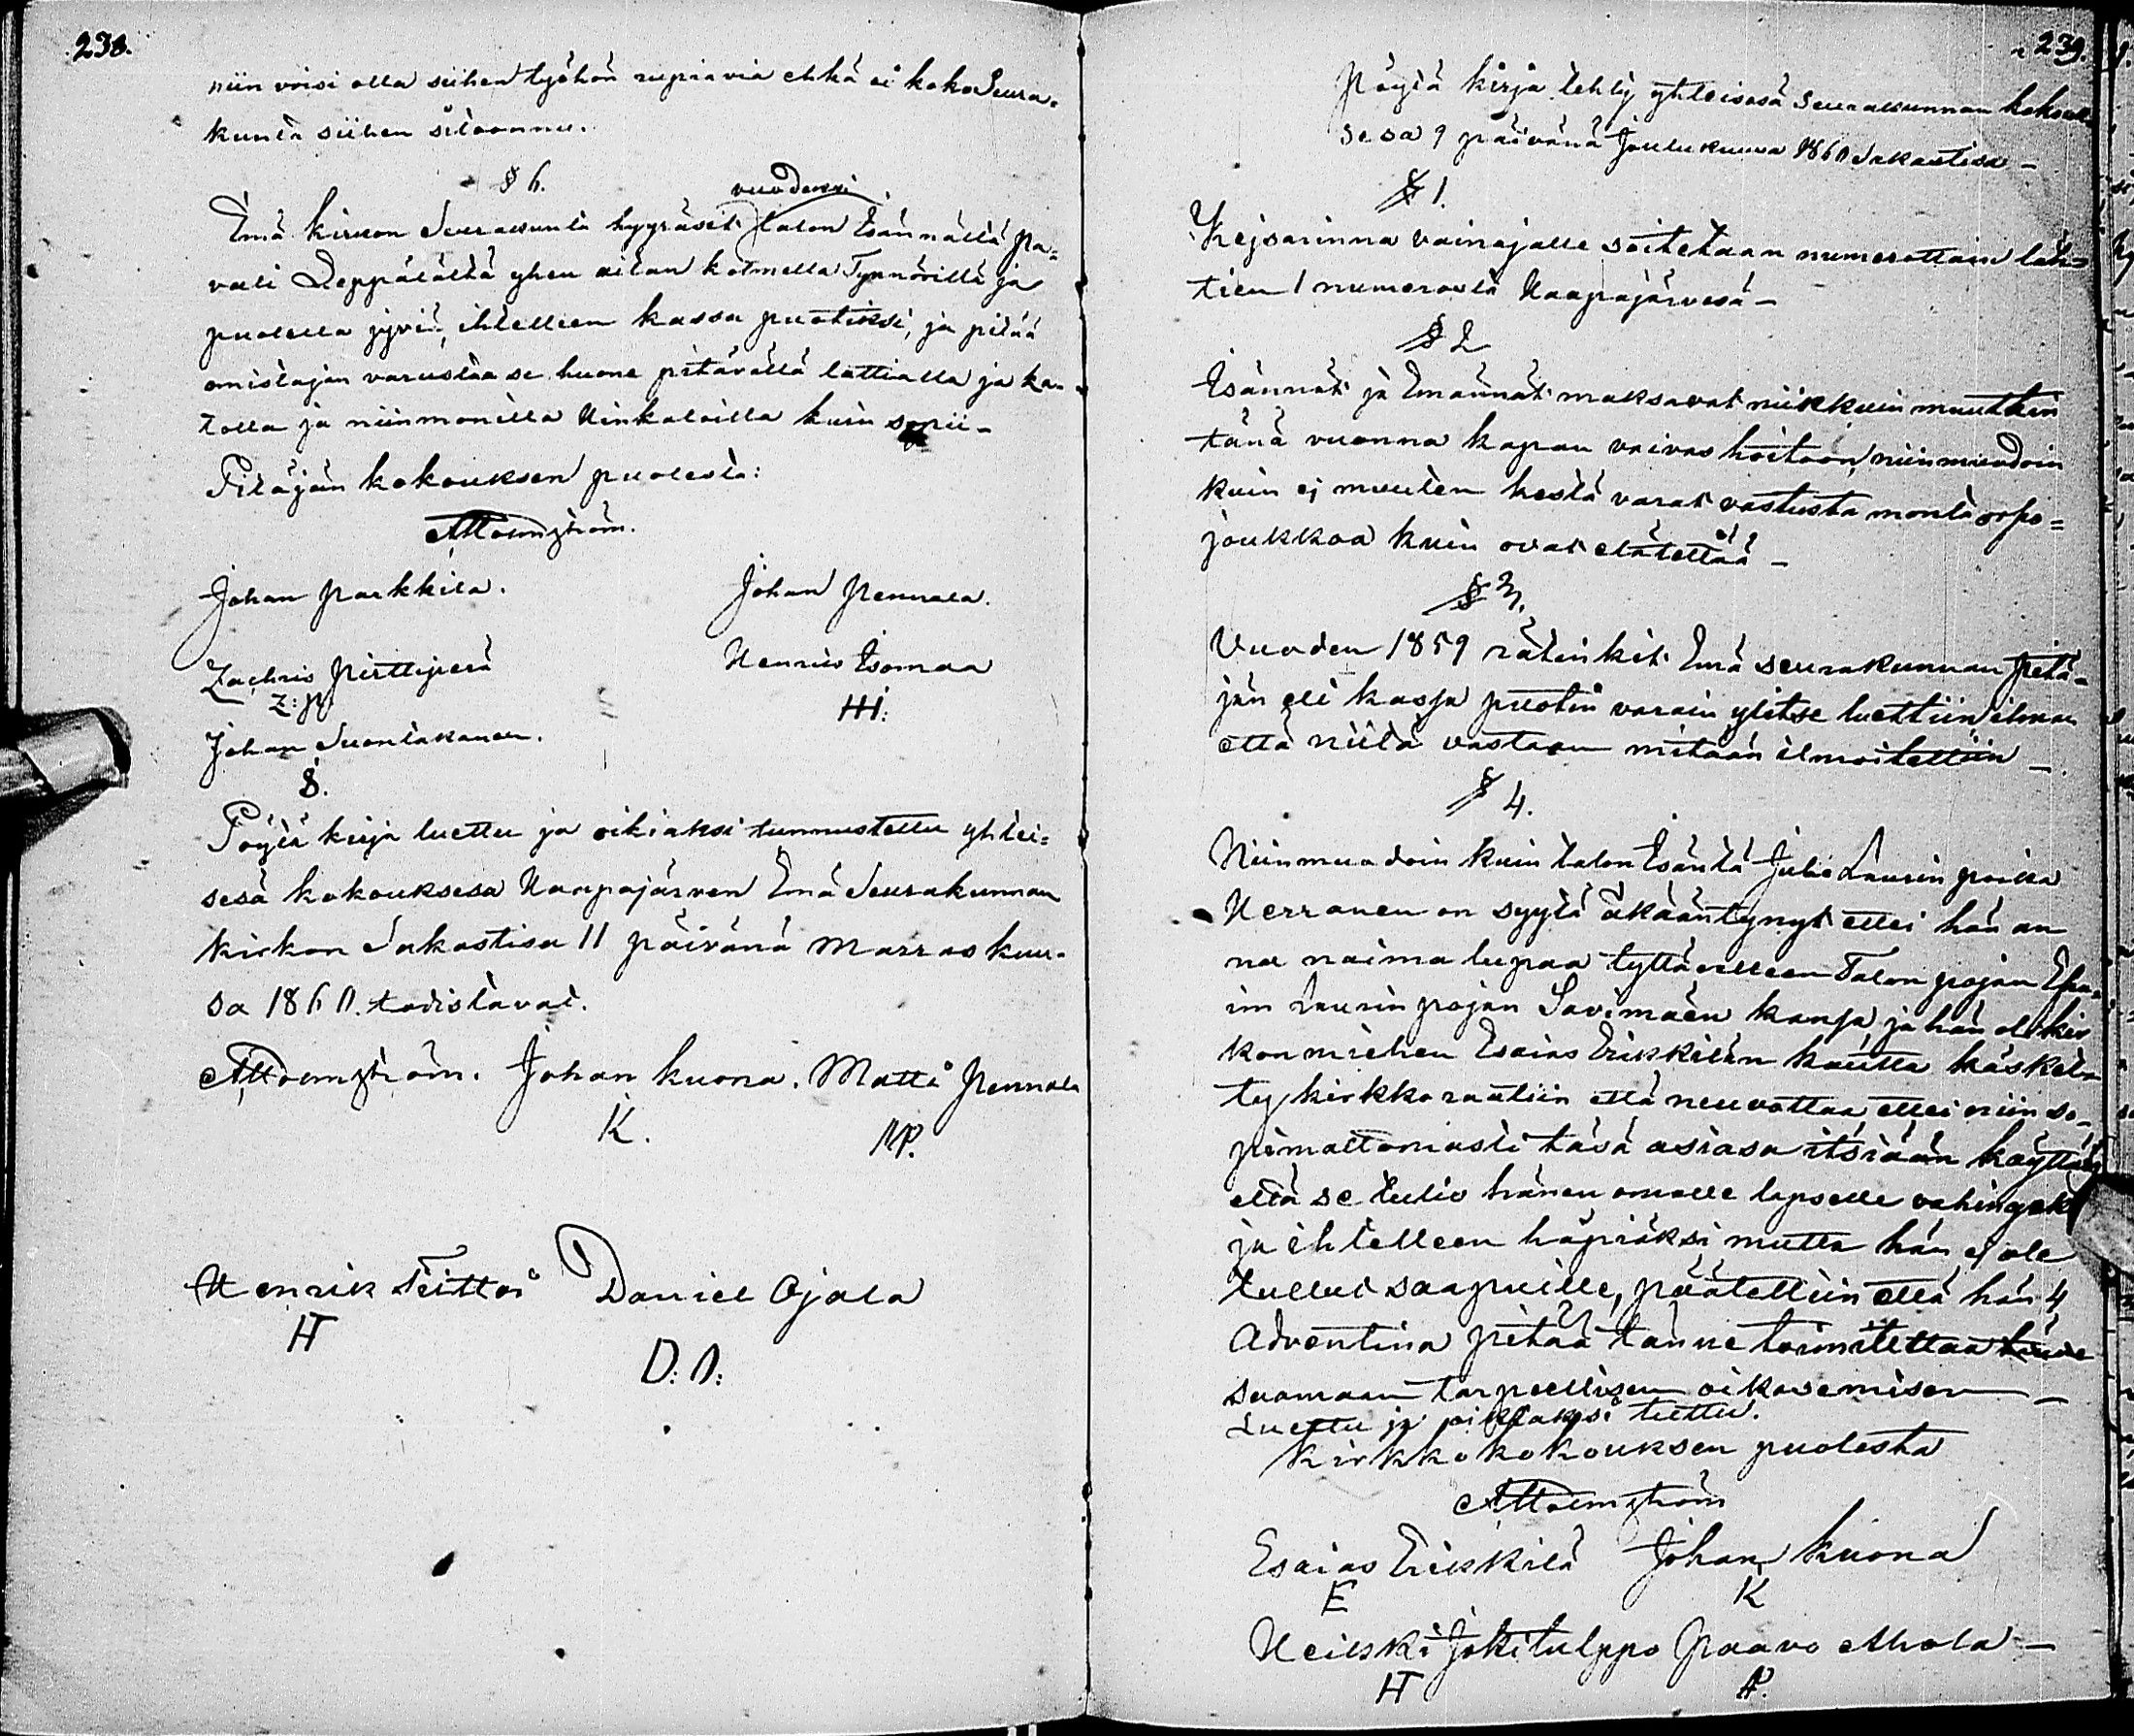 238.
niin voisi olla siihen työhön rupiavia ehkä ei koko Seura-
kunta siihen sitoonnu.
§ 6.
vuodeuxi
Emä kirkon Seurakunta hyyräsit talon Isännältä Pa-
vali Leppälältä yhen aitan kolmella Tynnörillä ja
puolella jyviä, ihtelleen kassa puotiksi, ja pitää
omistajan varustaa se huone pitävällä lattialla ja ka-
tolla ja niinmonilla Hinkaloilla kuin sopii-
Pitäjän kokouksen puolesta:
Johan Parkkila.
Johan Pennala.
Zachris Pirttiperä
Henric Isomaa
Z: P
HI:
Johan Suontakanen.
S.
Pöytä kirja luettu ja oikiaksi tunnustettu yhtei=
sesä kokouksesa Haapajärven Emä Seurakunnan
kirkon Sakastisa 11 päivänä Marraskuu-
sa 1860. todistavat.
Johan Kuona. Matti Pennala
K.
MP.
Henrik Teittoi Daniel Ojala
HT
D: O:
239.
Pöytä kirja tehty yhteisesä Seurakunnan kokouk-
sesa 9 päivänä Joulukuusa 1860 Sakastisa -
§ 1.
Kejsarinna vainajalle soitetaan numerottain läh=
tien 1 numerosta Haapajärvesä -
§ 2
Isännät ja Emännät maksavat niinkuin muutkin
tänä vuonna kapan vaivas hoitoon, niinmuodoin
kuin ej muuten kestä varat vastusta monta orpo=
joukkoa kuin ovat elätettää -
§ 3.
Vuoden 1859 rätinkit Emä seurakunnan Pitä-
jän eli kassa puotin varain ylitse luettiin ilman
että niitä vastaan mitään ilmoitettiin -.
§ 4.
Niinmuodoin kuin talon Isäntä Juho Laurin poika
Herranen on syytä äkääntynyt ellei hän an
na naima lupaa tyttärelleen Talon pojan Efra-
im Laurin pojan Savimäen kansa, ja hän oli kir
kon miehen Esaias Erikkilän kautta käsket-
ty kirkkoraatiin että neuvottaa, ettei niin so-
pimattomasti täsä asiasa itsiään käyttäy
että se tulis hänen omalle lapselle vahingoksi
ja ihtelleen häpiäksi mutta hän ej ole
tullut saapuille, päätettiin että hän 4
Adventina pitää tänne toimitettaa
saamaan tarpeellisen oikasemisen -
Luettu ja oikiaksi tuttu.
Kirkkokokouksen puolesta
Esaias Erikkilä Johan Kuona
E
K
Heikki Jokitulppo Paavo Ahola -
HT
AP.